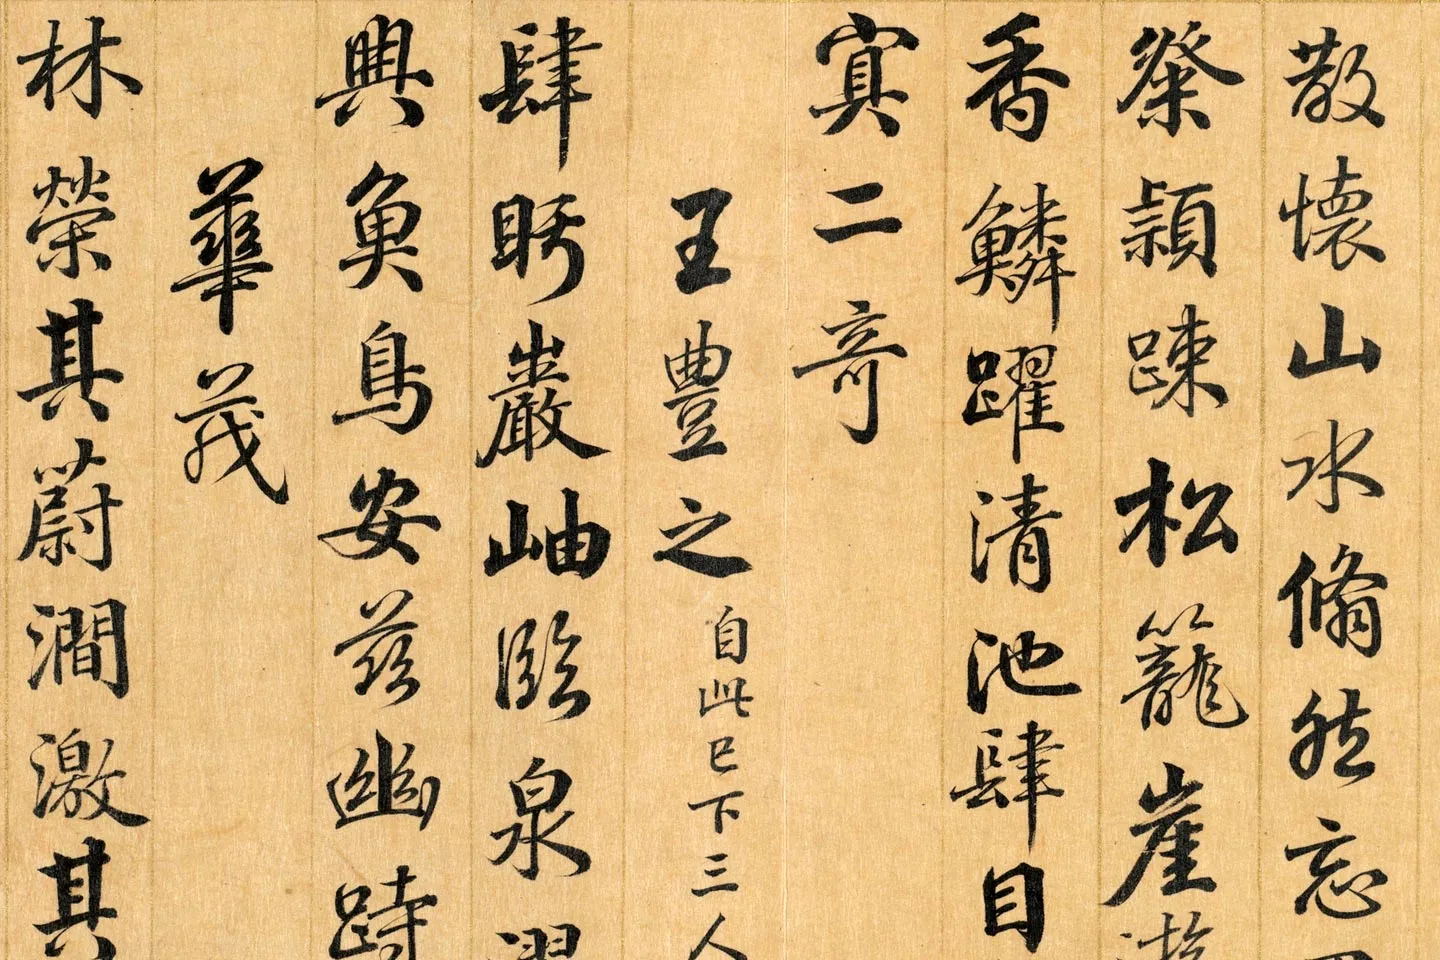 散懷山水翛然忘
榮穎踈松籠崖遊
香鱗躍清池肆目
寘二奇
王豐之 自此已下三人
肆眄巖岫臨泉濯
興魚鳥安茲幽跱
華茂
林榮其蔚澗激其